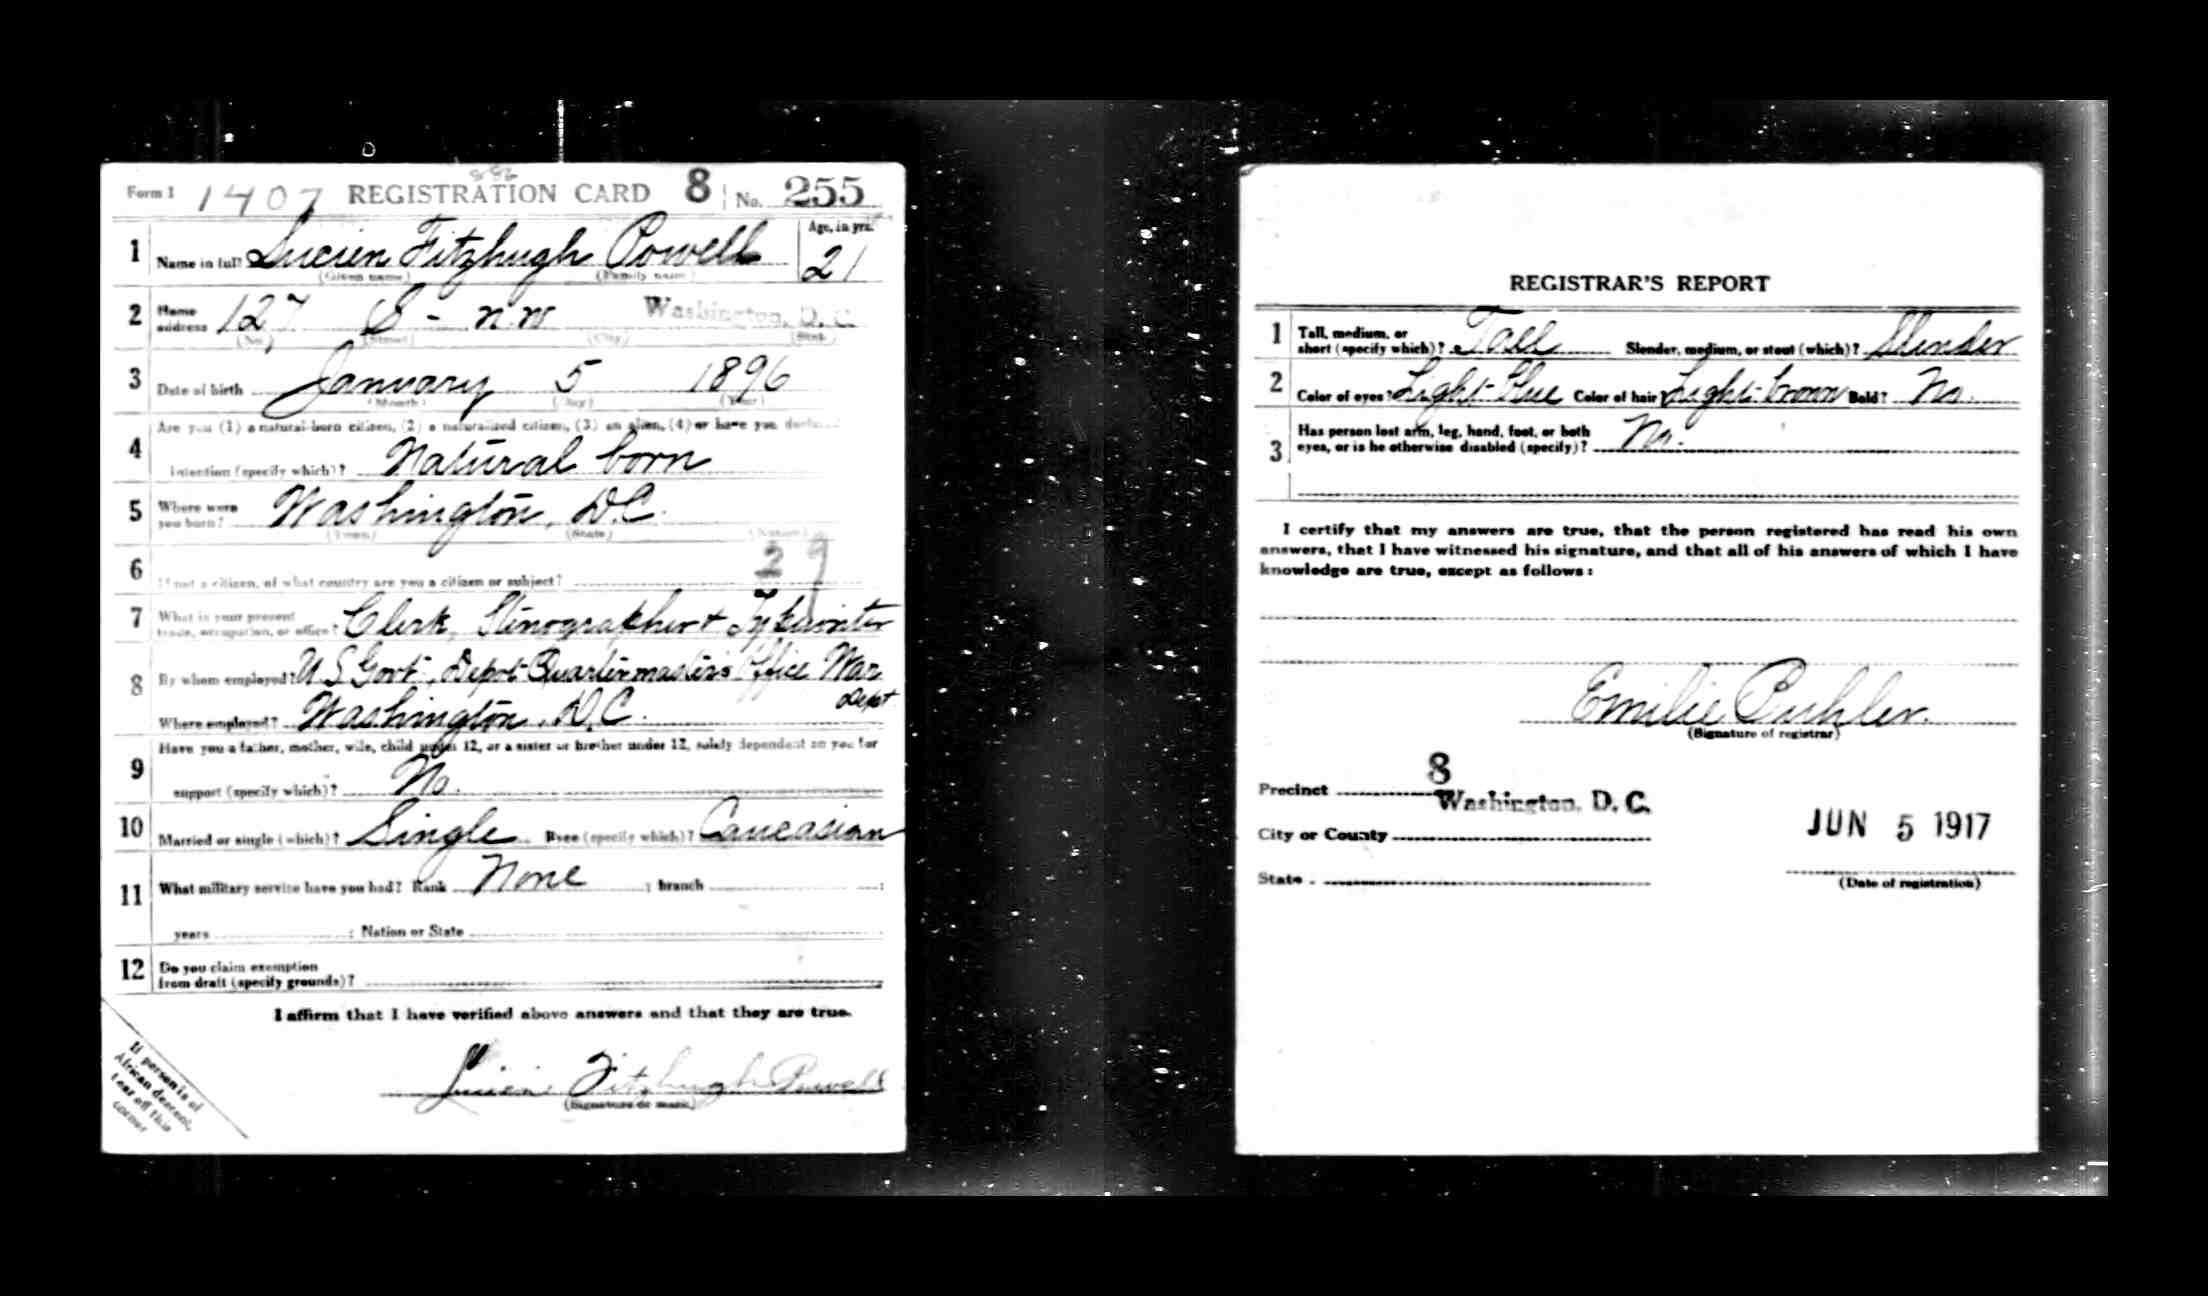 886
Form 1 1407 REGISTRATION CARD 8 No. 255
1 Name in full? Lucien Fitzhugh Powell Age, in yrs. 21
(Given name) (Family name)
2 Home address 127 S - N.W Washington, D. C.
(No.) (Street) (City) (State)
3 Date of birth January 5 1896
(Month) (Day) (Year)
Are you (1) a natural-born citizen, (2) a naturalized citizen, (3) an alien, (4) or have you
4 intention (specify which)? Natural born
5 Where were you born? Washington, D.C.
(Town) (State) (Nation)
29
6 If not a citizen, of what country are you a citizen or subject?
7 What is your present trade, occupation, or office? Clerk, Stenographer & Typewriter
8 By whom employed? U S Govt, Depot Quartermaster's Office War Dept
Where employed? Washington, D.C.
9 Have you a father, mother, wife, child under 12, or a sister or brother under 12, solely dependent on you for
support (specify which)? No.
10 Married or single (which)? Single Race (specify which)? Caucasian
11 What military service have you had? Rank None ; branch ;
years ; Nation or State
12 Do you claim exemption
from draft (specify grounds)?
I affirm that I have verified above answers and that they are true.
Lucien Fitzhugh Powell
(Signature or mark)
If person is of
African descent,
tear off this
corner
REGISTRAR'S REPORT
1 Tall, medium, or short (specify which)? Tall Slender, medium, or stout (which)? Slender
2 Color of eyes? Light-blue Color of hair? Light-brown Bald? No.
3 Has person lost arm, leg, hand, foot, or both
eyes, or is he otherwise disabled (specify)? No.
I certify that my answers are true, that the person registered has read his own
answers, that I have witnessed his signature, and that all of his answers of which I have
knowledge are true, except as follows:
Emilie
(Signature of registrar)
Precinct 8
Washington, D. C.
City or County
JUN 5 1917
State
(Date of registration)